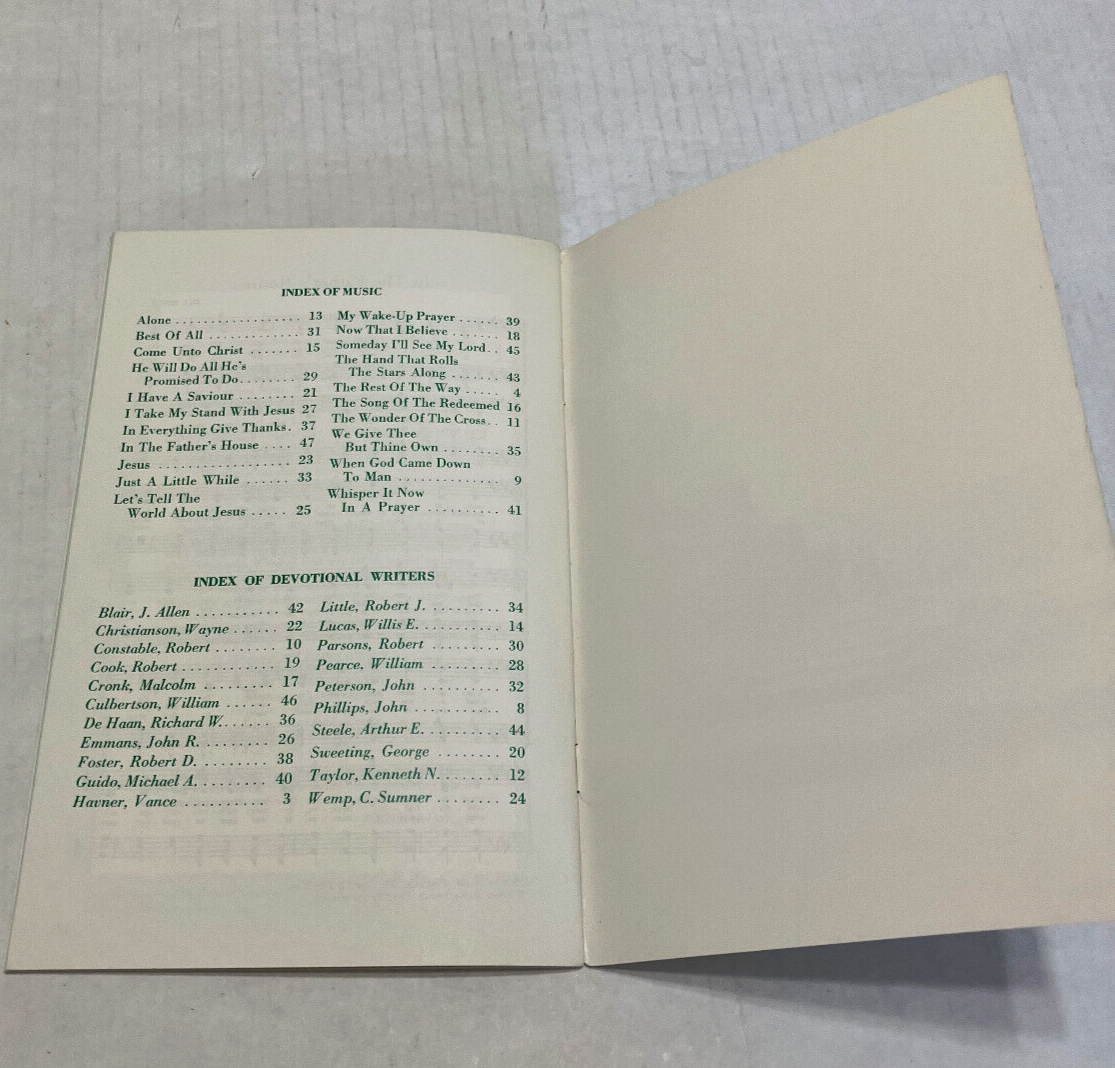 INDEX OF MUSIC
Alone . . . . . . . . . . . . . . . . . 13
Best Of All . . . . . . . . . . . . . 31
Come Unto Christ . . . . . . . 15
He Will Do All He's
Promised To Do. . . . . . . . 29
I Have A Saviour . . . . . . . . 21
I Take My Stand With Jesus 27
In Everything Give Thanks. 37
In The Father's House . . . . 47
Jesus . . . . . . . . . . . . . . . . . . 23
Just A Little While . . . . . . 33
Let's Tell The
World About Jesus . . . . . 25
My Wake-Up Prayer . . . . . . 39
Now That I Believe . . . . . . . 18
Someday I'll See My Lord. . 45
The Hand That Rolls
The Stars Along . . . . . . . 43
The Rest Of The Way . . . . . 4
The Song Of The Redeemed 16
The Wonder Of The Cross. . 11
We Give Thee
But Thine Own . . . . . . . . 35
When God Came Down
To Man . . . . . . . . . . . . . . 9
Whisper It Now
In A Prayer . . . . . . . . . . 41
INDEX OF DEVOTIONAL WRITERS
Blair, J. Allen . . . . . . . . . . . 42
Christianson, Wayne . . . . . . 22
Constable, Robert . . . . . . . . 10
Cook, Robert . . . . . . . . . . . . 19
Cronk, Malcolm . . . . . . . . . 17
Culbertson, William . . . . . . 46
De Haan, Richard W. . . . . . . 36
Emmans, John R. . . . . . . . . 26
Foster, Robert D. . . . . . . . . 38
Guido, Michael A. . . . . . . . . 40
Havner, Vance . . . . . . . . . . 3
Little, Robert J. . . . . . . . . . 34
Lucas, Willis E. . . . . . . . . . . 14
Parsons, Robert . . . . . . . . . . 30
Pearce, William . . . . . . . . . 28
Peterson, John . . . . . . . . . . 32
Phillips, John . . . . . . . . . . . 8
Steele, Arthur E. . . . . . . . . . 44
Sweeting, George . . . . . . . . 20
Taylor, Kenneth N. . . . . . . . 12
Wemp, C. Sumner . . . . . . . . 24